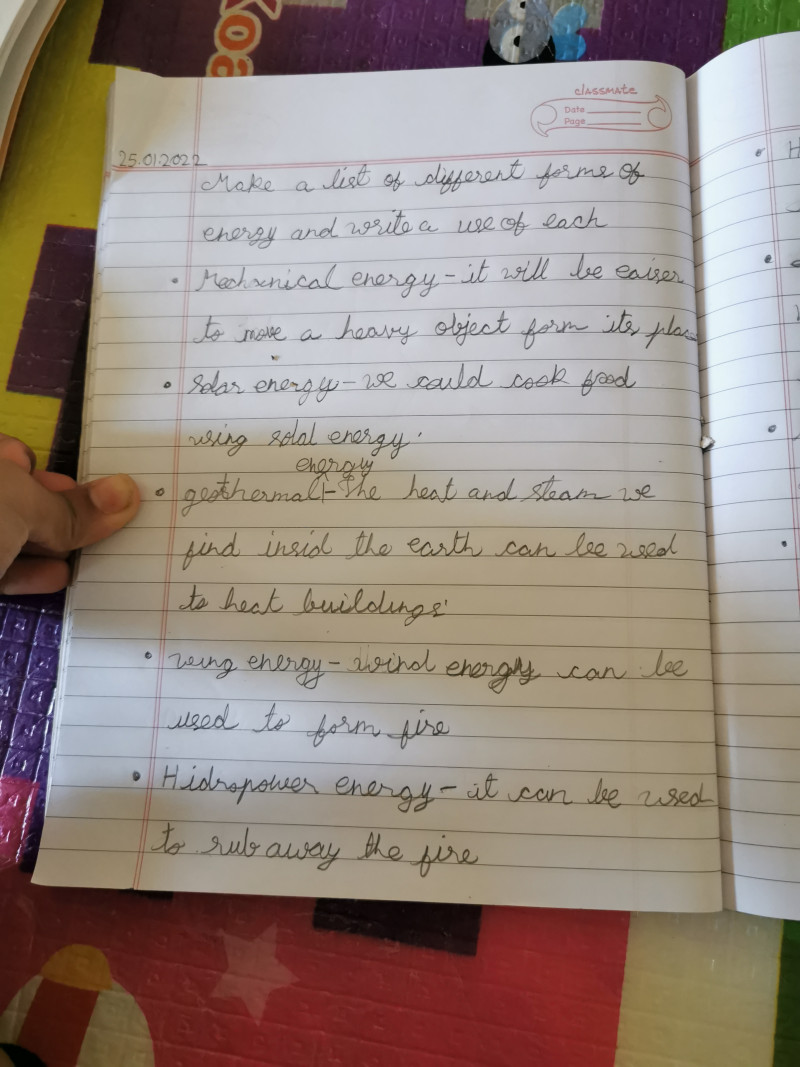 Koa
classmate
Date
Page
25.01.2022
Make a list of different forms of
energy and write a use of each
• Mechanical energy - it will be eaiser
to move a heavy object form its plac
• Solar energy - we could cook food
using solal energy.
energiy
• geothermal - The heat and steam we
find insid the earth can be used
to heat buildings.
• wing energy - wind energy can be
used to form fire
• Hidropower energy - it can be used
to rub away the fire
H